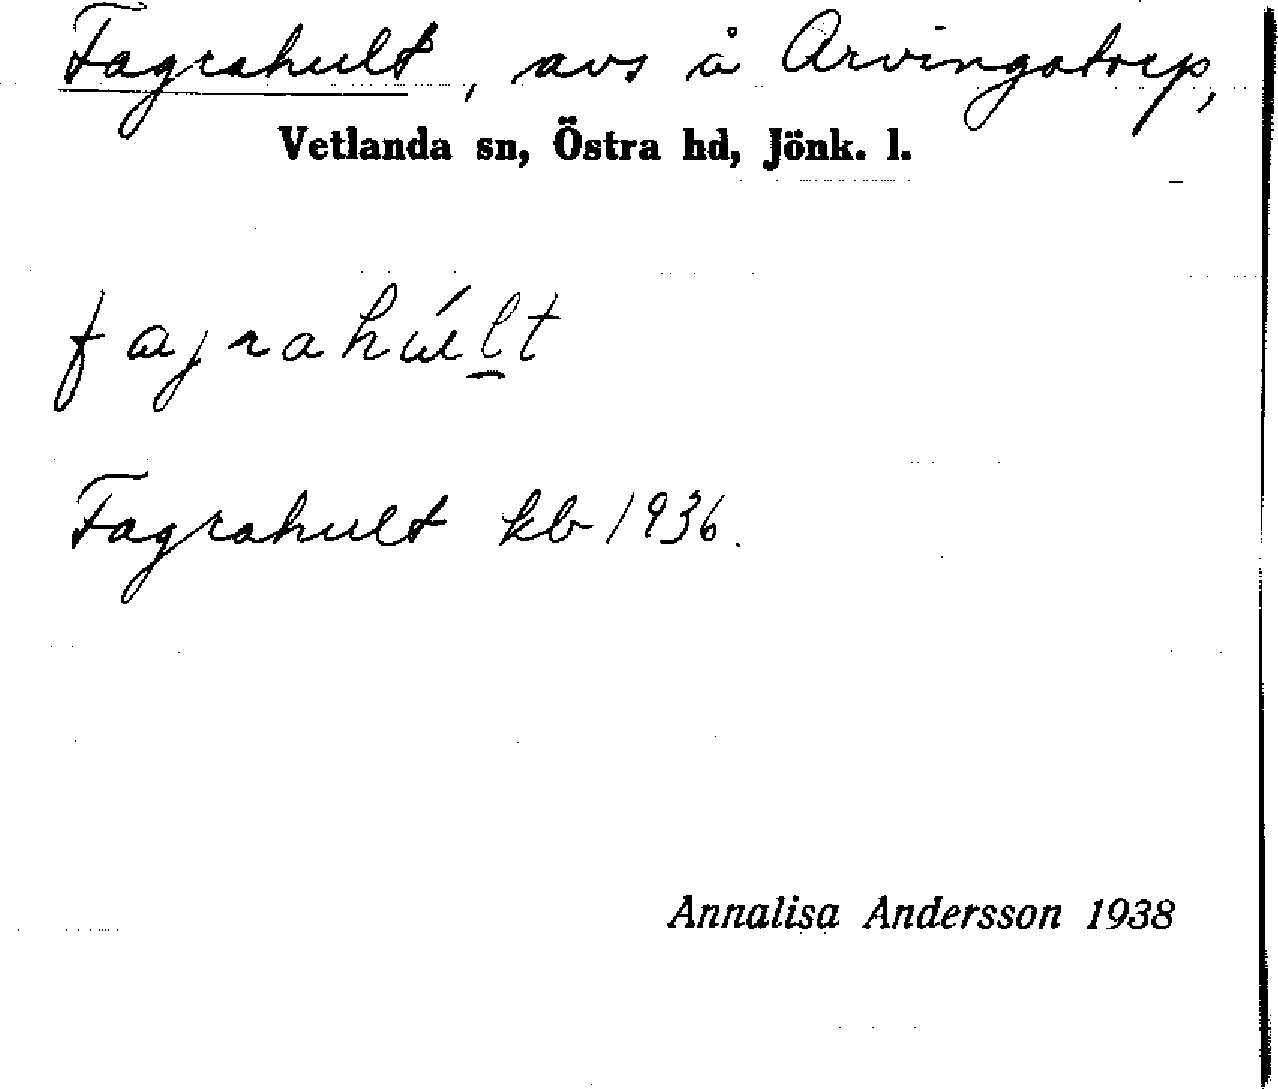 Fagrahult, avs å Arvingatorp,
Vetlanda sn, Östra hd, Jönk. l.
fajrahúlt
Fagrahult kb 1936.
Annalisa Andersson 1938